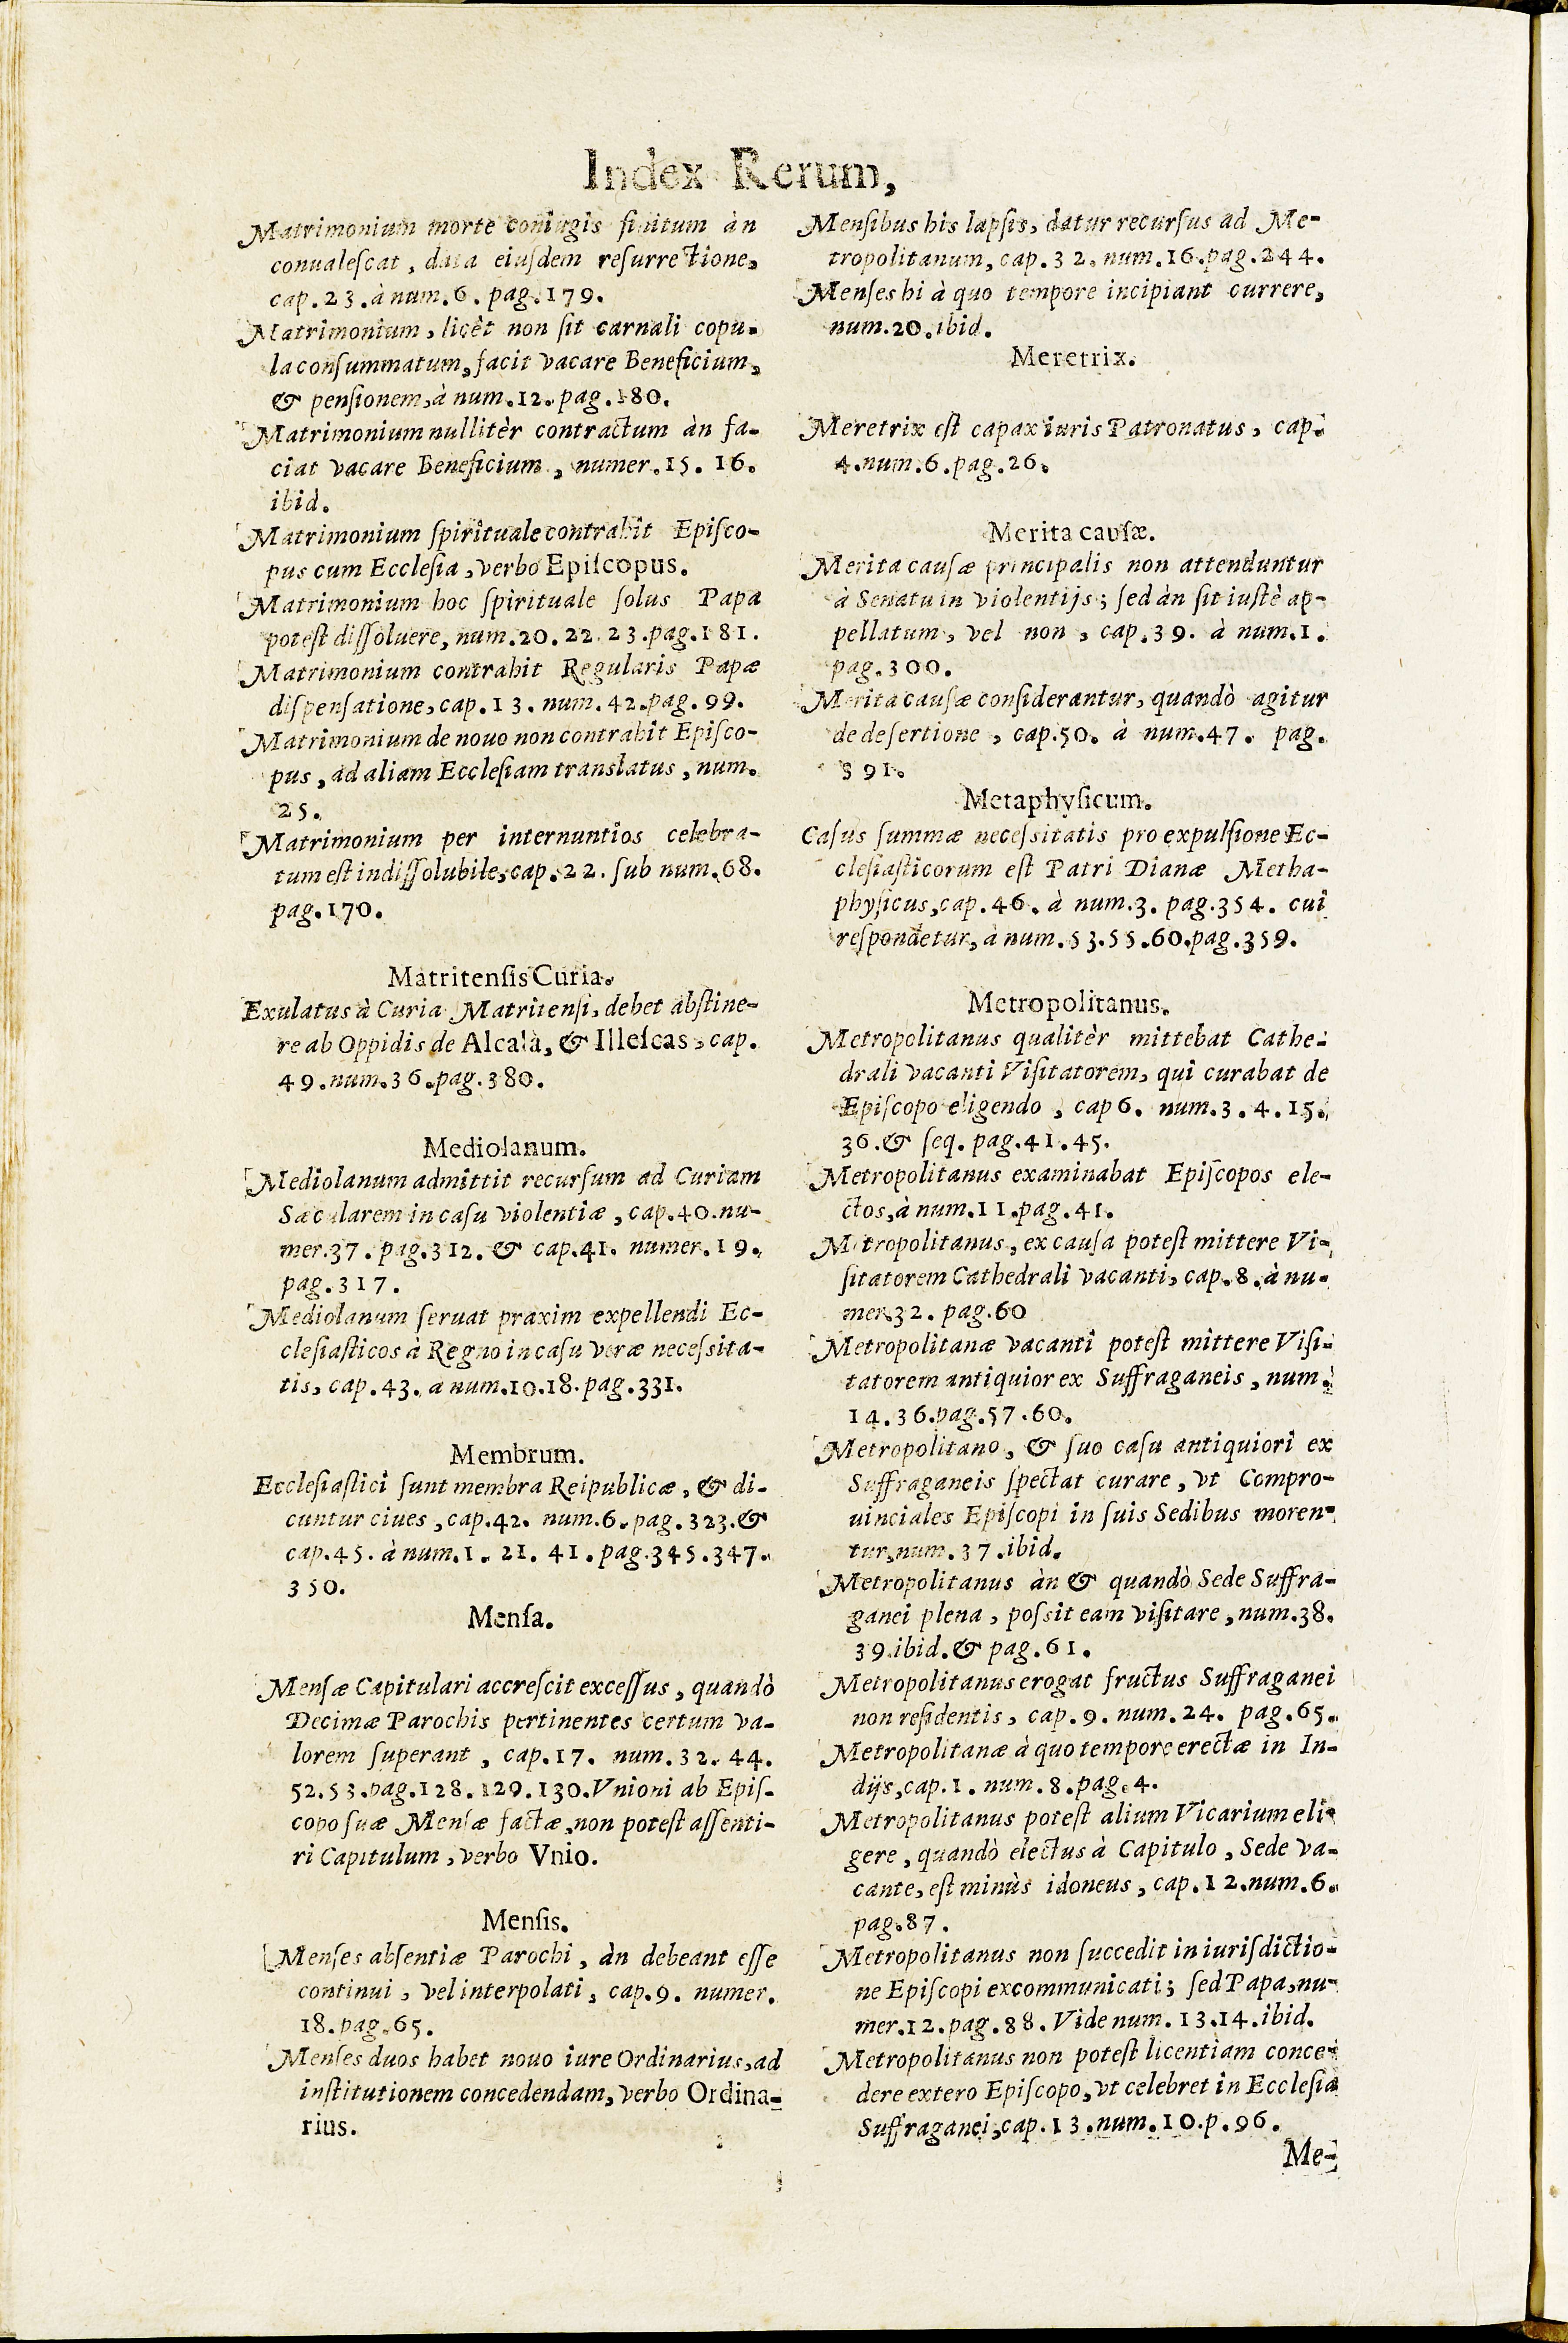 Index Rerum,
Matrimonium morte coniugis finitum àn
conualeſcat, data eiuſdem reſurrectione,
cap. 23. à num. 6. pag. 179.
Matrimonium, licèt non ſit carnali copu-
la conſummatum, facit vacare Beneficium,
& penſionem, à num. 12. pag. 180.
Matrimonium nullitèr contractum àn fa-
ciat vacare Beneficium, numer. 15. 16.
ibid.
Matrimonium ſpirituale contrahit Epiſco-
pus cum Eccleſia, verbo Epiſcopus.
Matrimonium hoc ſpirituale ſolus Papa
poteſt diſſoluere, num. 20. 22. 23. pag. 181.
Matrimonium contrahit Regularis Papæ
diſpenſatione, cap. 13. num. 42. pag. 99.
Matrimonium de nouo non contrahit Epiſco-
pus, ad aliam Eccleſiam translatus, num.
25.
Matrimonium per internuntios celebra-
tum eſt indiſſolubile, cap. 22. ſub num. 68.
pag. 170.
Matritenſis Curia.
Exulatus à Curia Matritenſi, debet abſtine-
re ab Oppidis de Alcalà, & Illeſcas, cap.
49. num. 36. pag. 380.
Mediolanum.
Mediolanum admittit recurſum ad Curiam
Sæcularem in caſu violentiæ, cap. 40. nu-
mer. 37. pag. 312. & cap. 41. numer. 19.
pag. 317.
Mediolanum ſeruat praxim expellendi Ec-
cleſiaſticos à Regno in caſu veræ neceſsita-
tis, cap. 43. a num. 10. 18. pag. 331.
Membrum.
Eccleſiaſtici ſunt membra Reipublicæ, & di-
cuntur ciues, cap. 42. num. 6. pag. 323. &
cap. 45. à num. 1. 21. 41. pag. 345. 347.
350.
Menſa.
Menſæ Capitulari accreſcit exceſſus, quandò
Decimæ Parochis pertinentes certum va-
lorem ſuperant, cap. 17. num. 32. 44.
52. 53. pag. 128. 129. 130. Vnioni ab Epiſ-
copo ſuæ Menſæ factæ, non poteſt aſſenti-
ri Capitulum, verbo Vnio.
Menſis.
Menſes abſentiæ Parochi, àn debeant eſſe
continui, vel interpolati, cap. 9. numer.
18. pag. 65.
Menſes duos habet nouo iure Ordinarius, ad
inſtitutionem concedendam, verbo Ordina-
rius.
Menſibus his lapſis, datur recurſus ad Me-
tropolitanum, cap. 32. num. 16. pag. 244.
Menſes hi à quo tempore incipiant currere,
num. 20. ibid.
Meretrix.
Meretrix eſt capax iuris Patronatus, cap.
4. num. 6. pag. 26.
Merita cauſæ.
Merita cauſæ principalis non attenduntur
à Senatu in violentijs; ſed àn ſit iuſtè ap-
pellatum, vel non, cap. 39. à num. 1.
pag. 300.
Merita cauſæ conſiderantur, quandò agitur
de deſertione, cap. 50. à num. 47. pag.
391.
Metaphyſicum.
Caſus ſummæ neceſsitatis pro expulſione Ec-
cleſiaſticorum eſt Patri Dianæ Metha-
phyſicus, cap. 46. à num. 3. pag. 354. cui
reſpondetur, à num. 53. 55. 60. pag. 359.
Metropolitanus.
Metropolitanus qualitèr mittebat Cathe-
drali vacanti Viſitatorem, qui curabat de
Epiſcopo eligendo, cap 6. num. 3. 4. 15.
36. & ſeq. pag. 41. 45.
Metropolitanus examinabat Epiſcopos ele-
ctos, à num. 11. pag. 41.
Metropolitanus, ex cauſa poteſt mittere Vi-
ſitatorem Cathedrali vacanti, cap. 8. à nu-
mer. 32. pag. 60
Metropolitanæ vacanti poteſt mittere Viſi-
tatorem antiquior ex Suffraganeis, num.
14. 36. pag. 57. 60.
Metropolitano, & ſuo caſu antiquiori ex
Suffraganeis ſpectat curare, vt Compro-
uinciales Epiſcopi in ſuis Sedibus moren-
tur, num. 37. ibid.
Metropolitanus àn & quandò Sede Suffra-
ganei plena, poſsit eam viſitare, num. 38.
39. ibid. & pag. 61.
Metropolitanus erogat fructus Suffraganei
non reſidentis, cap. 9. num. 24. pag. 65.
Metropolitanæ à quo tempore erectæ in In-
dijs, cap. 1. num. 8. pag. 4.
Metropolitanus poteſt alium Vicarium eli-
gere, quandò electus à Capitulo, Sede va-
cante, eſt minùs idoneus, cap. 12. num. 6.
pag. 87.
Metropolitanus non ſuccedit in iuriſdictio-
ne Epiſcopi excommunicati; ſed Papa, nu-
mer. 12. pag. 88. Vide num. 13. 14. ibid.
Metropolitanus non poteſt licentiam conce-
dere extero Epiſcopo, vt celebret in Eccleſia
Suffraganei, cap. 13. num. 10. p. 96.
Me-